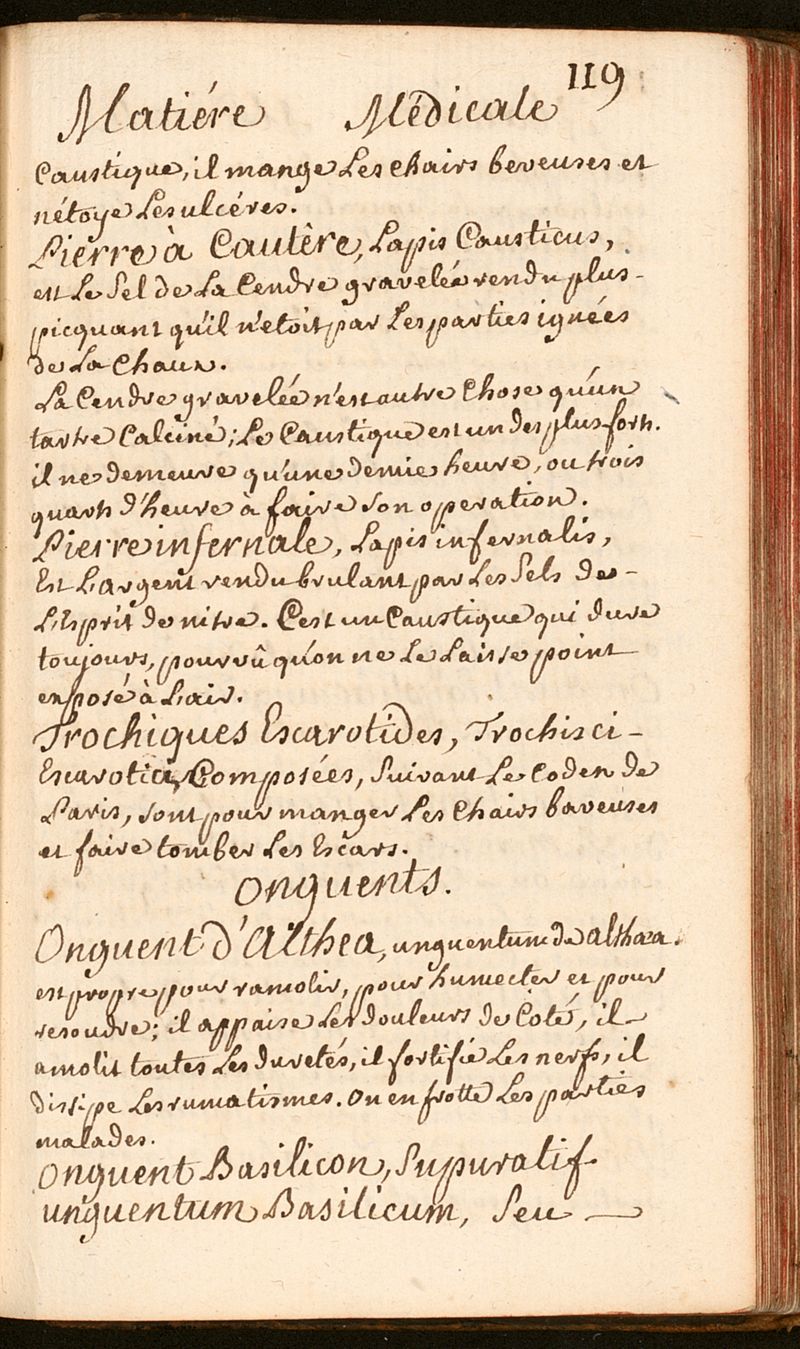 119
Matiére Médicale
Caustique, il mange Les chairs beveuses et
nétoye Les ulcéres.
Pierre à Cautêre, Lapis Causticus,
est Le Sel de La Cendre gravelée rendu plus-
picquant qu'il n'etoit par Les parties ignées
de La Chaux.
La Cendre gravelée n'est autre Chose qu'un
tartre Calciné; Le Caustique est un des plus forts.
il ne demeure qu'une demie heure, ou trois
quarts d'heure à faire son operation.
Pierre infernale, Lapis infernalis,
Est L'argent rendu brulant par Les Sels de-
L'Esprit de nitre. C'est un Caustique qui dure
toujours, pourvû qu'on ne Le Laisse point
exposé à L'air.
Trochiques Escarotides, Trochisci-
Escarotici, Composées, Suivant Le Codex de
Paris, sont pour manger Les Chairs baveuses
et faire tomber Les Escars.
Onguents.
Onguent d'Althea, unguentum de althæa.
est propre pour ramolir, pour humecter et pour
resoudre; il appaise Les douleurs de Coté, il-
amolit toutes Les duretés, il fortifie Les nerfs, il
dissipe Les rumatismes. On en frotte Les parties
malades.
Onguent Basilicon, Supuratif
unguentum Basilicum, Seu —